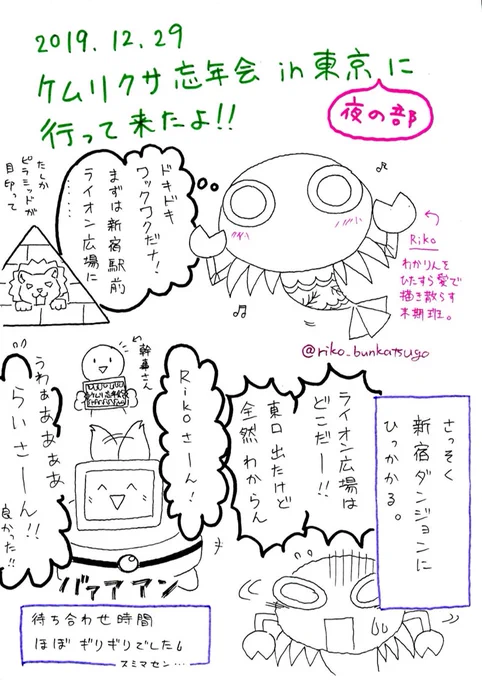 2019.12.29
ケムリクサ忘年会 in 東京に
行って来たよ!!
夜の部
ドキドキ
ワックワクだナ!
まずは新宿駅前
ライオン広場に
……
たしか
ピラミッドが
目印って
Riko
わかりんを
ひたすら愛で
描き散らす
木期班。
@riko_bunkatsugo
さっそく
新宿ダンジョンに
ひっかかる。
ライオン広場は
どこだー!!
東口出たけど
全然わからん
幹事さん
ケムリクサ忘年会
Rikoさーん!
うわぁぁぁぁぁ
らいさーん!!
良かった!!
バァアアン
待ち合わせ時間
ほぼギリギリでした
スミマセン…